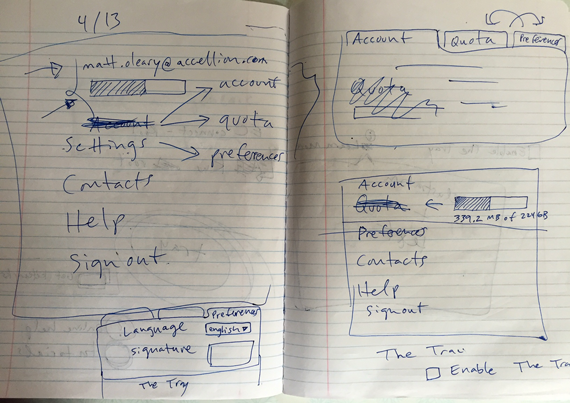 4/13
matt.oleary@accellion.com
account
Account
quota
Settings
preferences
Contacts
Help
Sign out
Preferences
Language
english
signature
The Tray
Account
Quota
Preferences
Quota
Account
Quota
339.2 MB of
Preferences
Contacts
Help
Sign out
The Tray
Enable The Tra